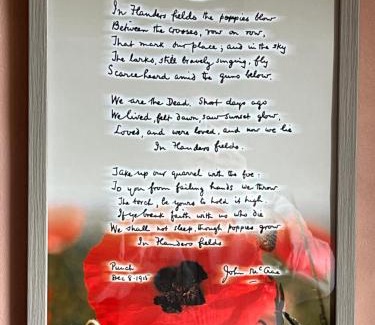 In Flanders fields the poppies blow
Between the crosses, row on row,
That mark our place; and in the sky
The larks, still bravely singing, fly
Scarce heard amid the guns below.
We are the Dead. Short days ago
We lived, felt dawn, saw sunset glow,
Loved, and were loved, and now we lie
In Flanders fields.
Take up our quarrel with the foe:
To you from failing hands we throw
The torch; be yours to hold it high.
If ye break faith with us who die
We shall not sleep, though poppies grow
In Flanders fields
Punch
Dec 8·1915
John McCrae